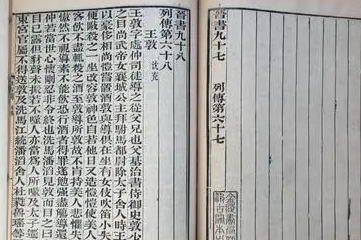 晉書九十七 列傳第六十七
晉書九十八
列傳第六十八
王敦 沈充
王敦字處仲司徒導之從父兄也父基治書侍御史敦少
之目尚武帝女襄城公主拜駙馬都尉除太子舍人時王
以豪侈相尚愷嘗置酒敦與導俱在坐有女伎吹笛小失
便敺殺之一坐改容敦神色自若他日又造愷愷使美人
客飲不盡輒殺之酒至敦導所敦故不肯持美人悲懼失
傲然不視導素不能飲恐行酒者得罪遂勉強盡觴導還
若當世心懷剛忍非令終也洗馬潘滔見敦而目之曰
目已露但豺聲未振若不噬人亦當為人所噬及太子遷
東宮官屬不得送敦及洗馬江統潘滔舍人杜蕤魯瑤等